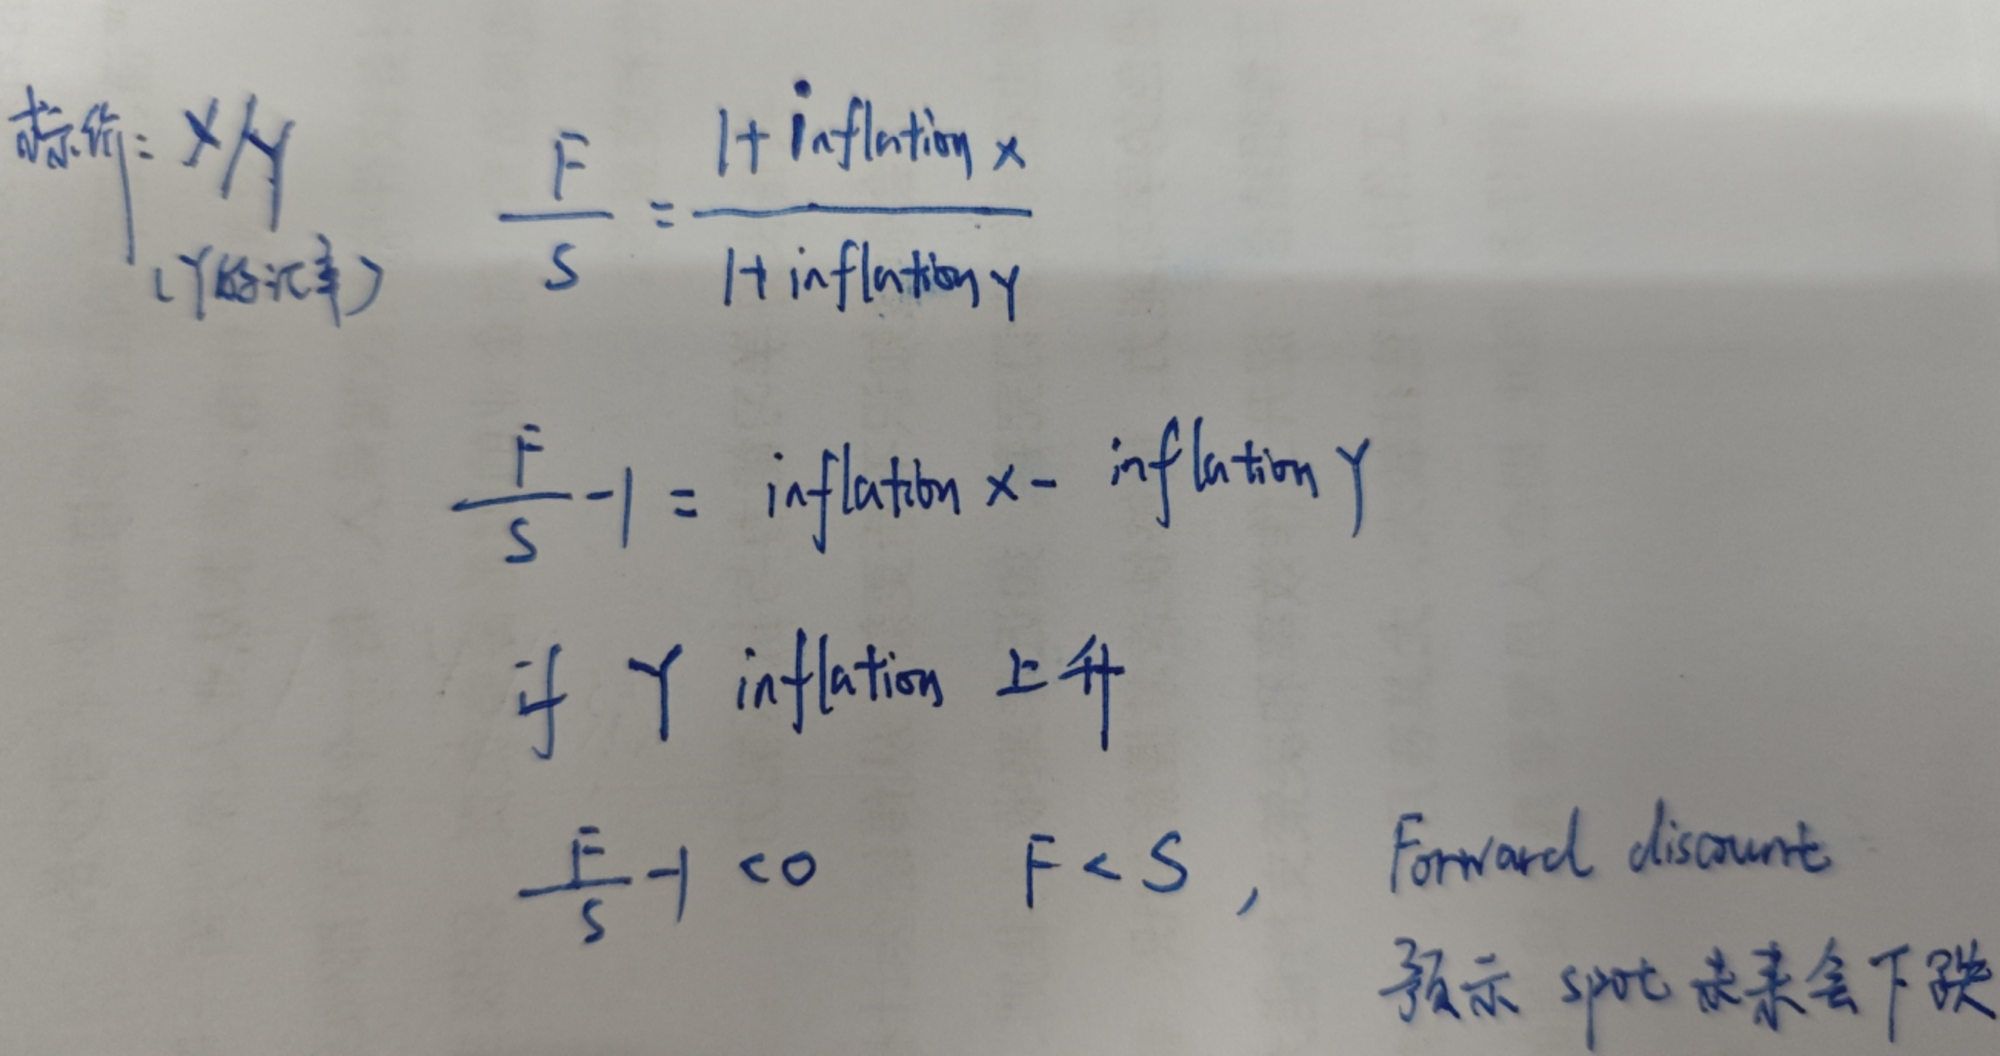 标价: X/Y
(Y的汇率)
F/S = (1+ inflation x)/(1+ inflation Y)
F/S -1 = inflation x - inflation Y
if Y inflation 上升
F/S -1 <0 F < S , Forward discount
预示 spot 未来会下跌